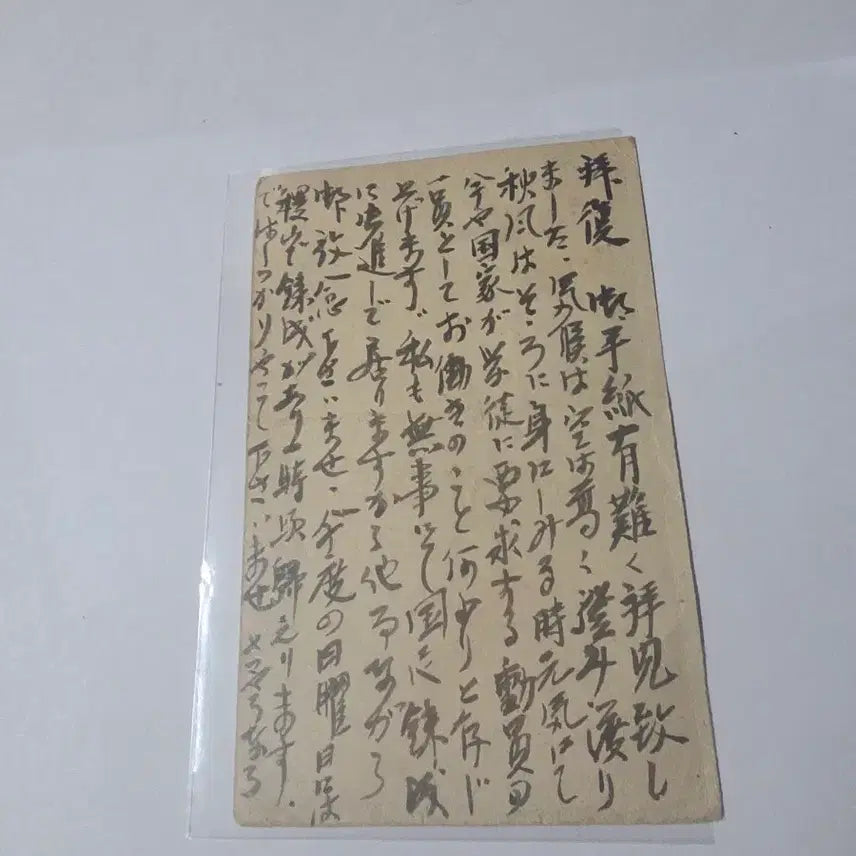 拝復 御手紙有難く拝見致し
ました、気候は空は高く澄み渡り
秋風はそゞろに身にしみる時元気にて
今や国家が学徒に要求する動員の
一員としてお働きのこと何よりと存じ
上げます、私も無事にて国に錬成
に しで居りますから他事ながら
御放念下さいませ、今度の日曜日には
錬成があり 時頃帰えります、
ではしつかりやつて下さいませ さやうなら